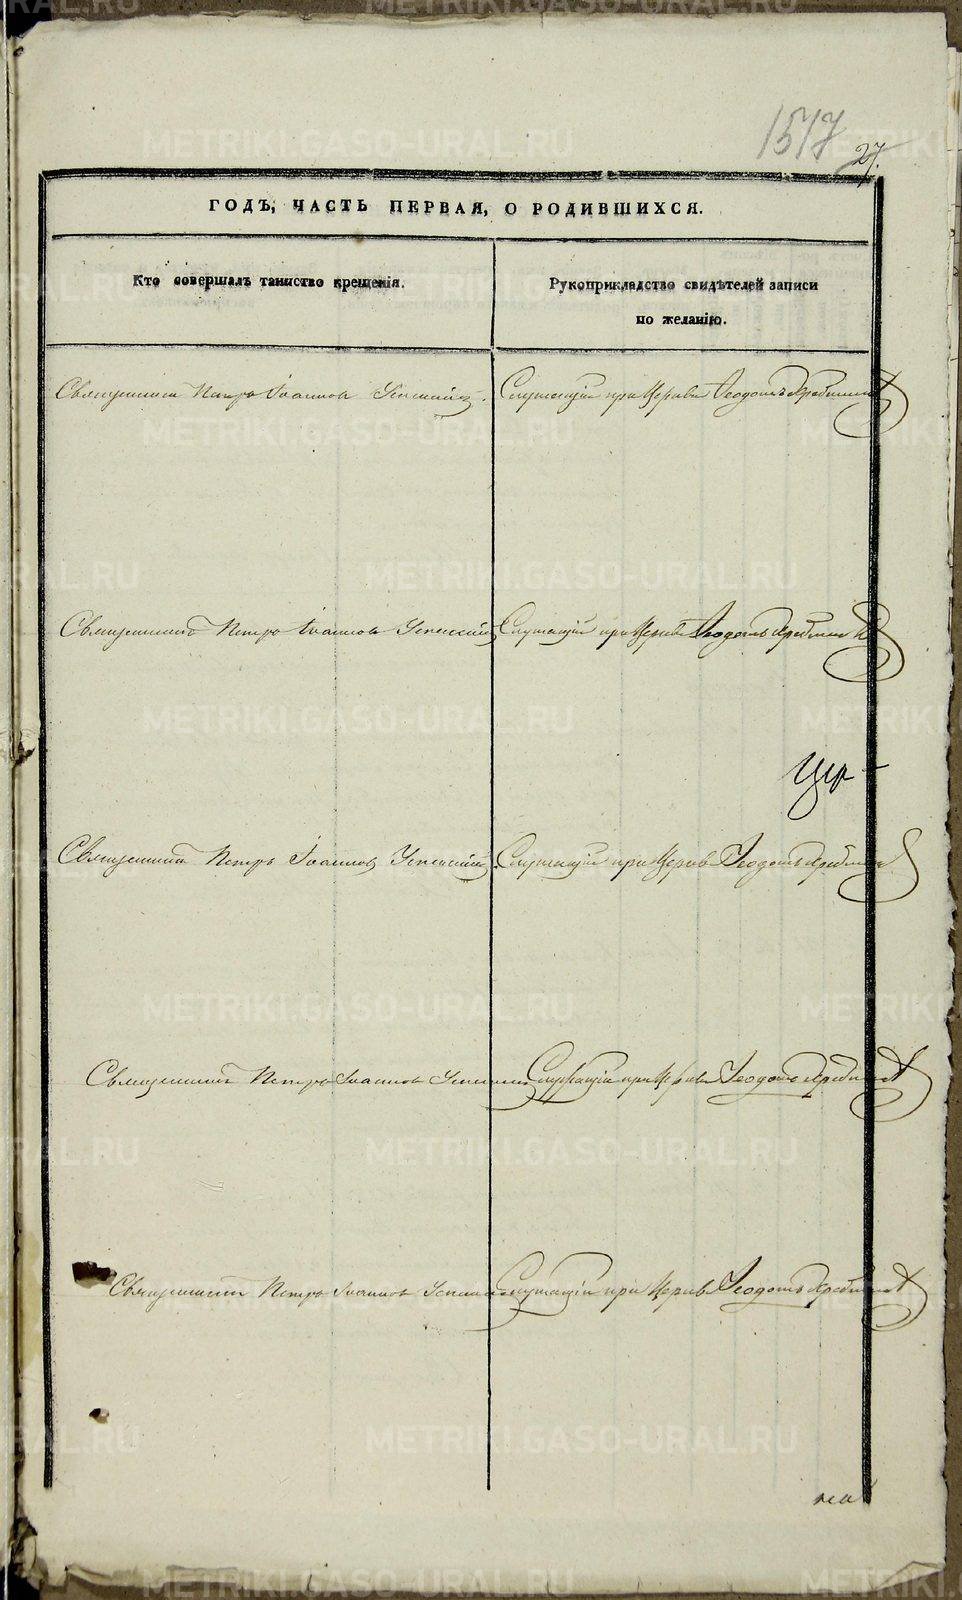 1517
27.
ГОДЪ, ЧАСТЬ ПЕРВАЯ, О РОДИВШИХСЯ.
Кто совершалъ таинство крещенія.
Рукоприкладство свидѣтелей записи
по желанію.
Священникъ Петръ Іоанновъ Успенскій.
Служащій при Церкви Ѳеодотъ
Священникъ Петръ Іоанновъ Успенскій
Служащій при Церкви Ѳеодотъ
Священникъ Петръ Іоанновъ Успенскій.
Служащій при Церкви Ѳеодотъ
Священникъ Петръ Іоанновъ Успенскій
Служащій при Церкви Ѳеодотъ
Священникъ Петръ Іоанновъ Успенскій
Служащій при Церкви Ѳеодотъ
METRIKI.GASO-URAL.RU